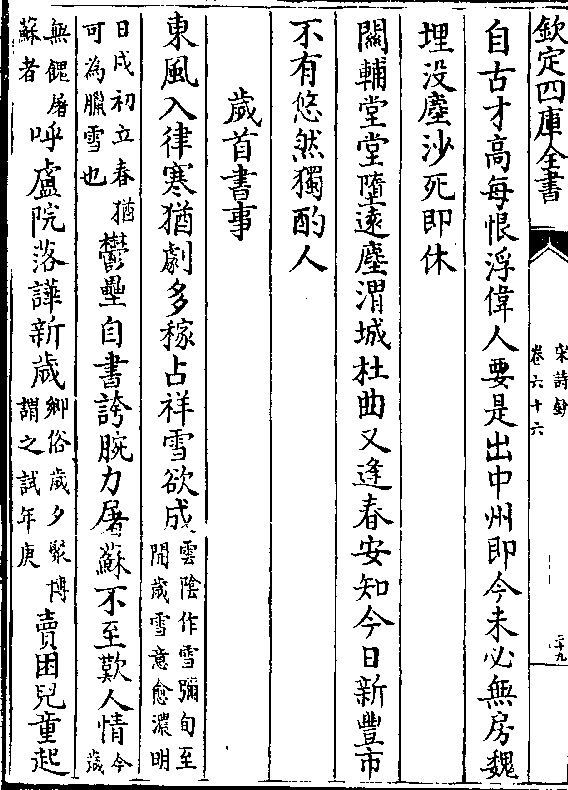 欽定四庫全書
宋詩鈔
卷六十六
二十九
自古才高每恨浮偉人要是出中州即今未必無房魏
埋没塵沙死即休
關輔堂堂墮逺塵渭城杜曲又逢春安知今日新豐市
不有悠然獨酌人
歲首書事
東風入律寒猶劇多稼占祥雪欲成
雲陰作雪彌旬至
開歲雪意愈濃明
日戌初立春猶
可為臘雪也
鬱壘自書誇腕力屠蘇不至歎人情
今
歲
無餽屠
蘇者
呼盧院落譁新歲
鄉俗歲夕聚博
謂之試年庚
賣困兒童起